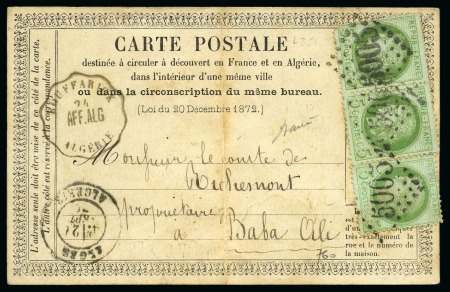 CARTE POSTALE
destinée à circuler à découvert en France et en Algérie,
dans l'intérieur d'une même ville
ou dans la circonscription du même bureau.
(Loi du 20 Décembre 1872.)
AFF.ALG
ALGÉRIE
Monsieur le comte de
Richemont
propriétaire
à Baba Ali
760
ALGER
ALGÉRIE
5005
5005
L'adresse seule doit être mise de ce côté de la carte.
L'autre côté est réservé à la correspondance.
très-exactement la
rue et le numéro de
la maison.